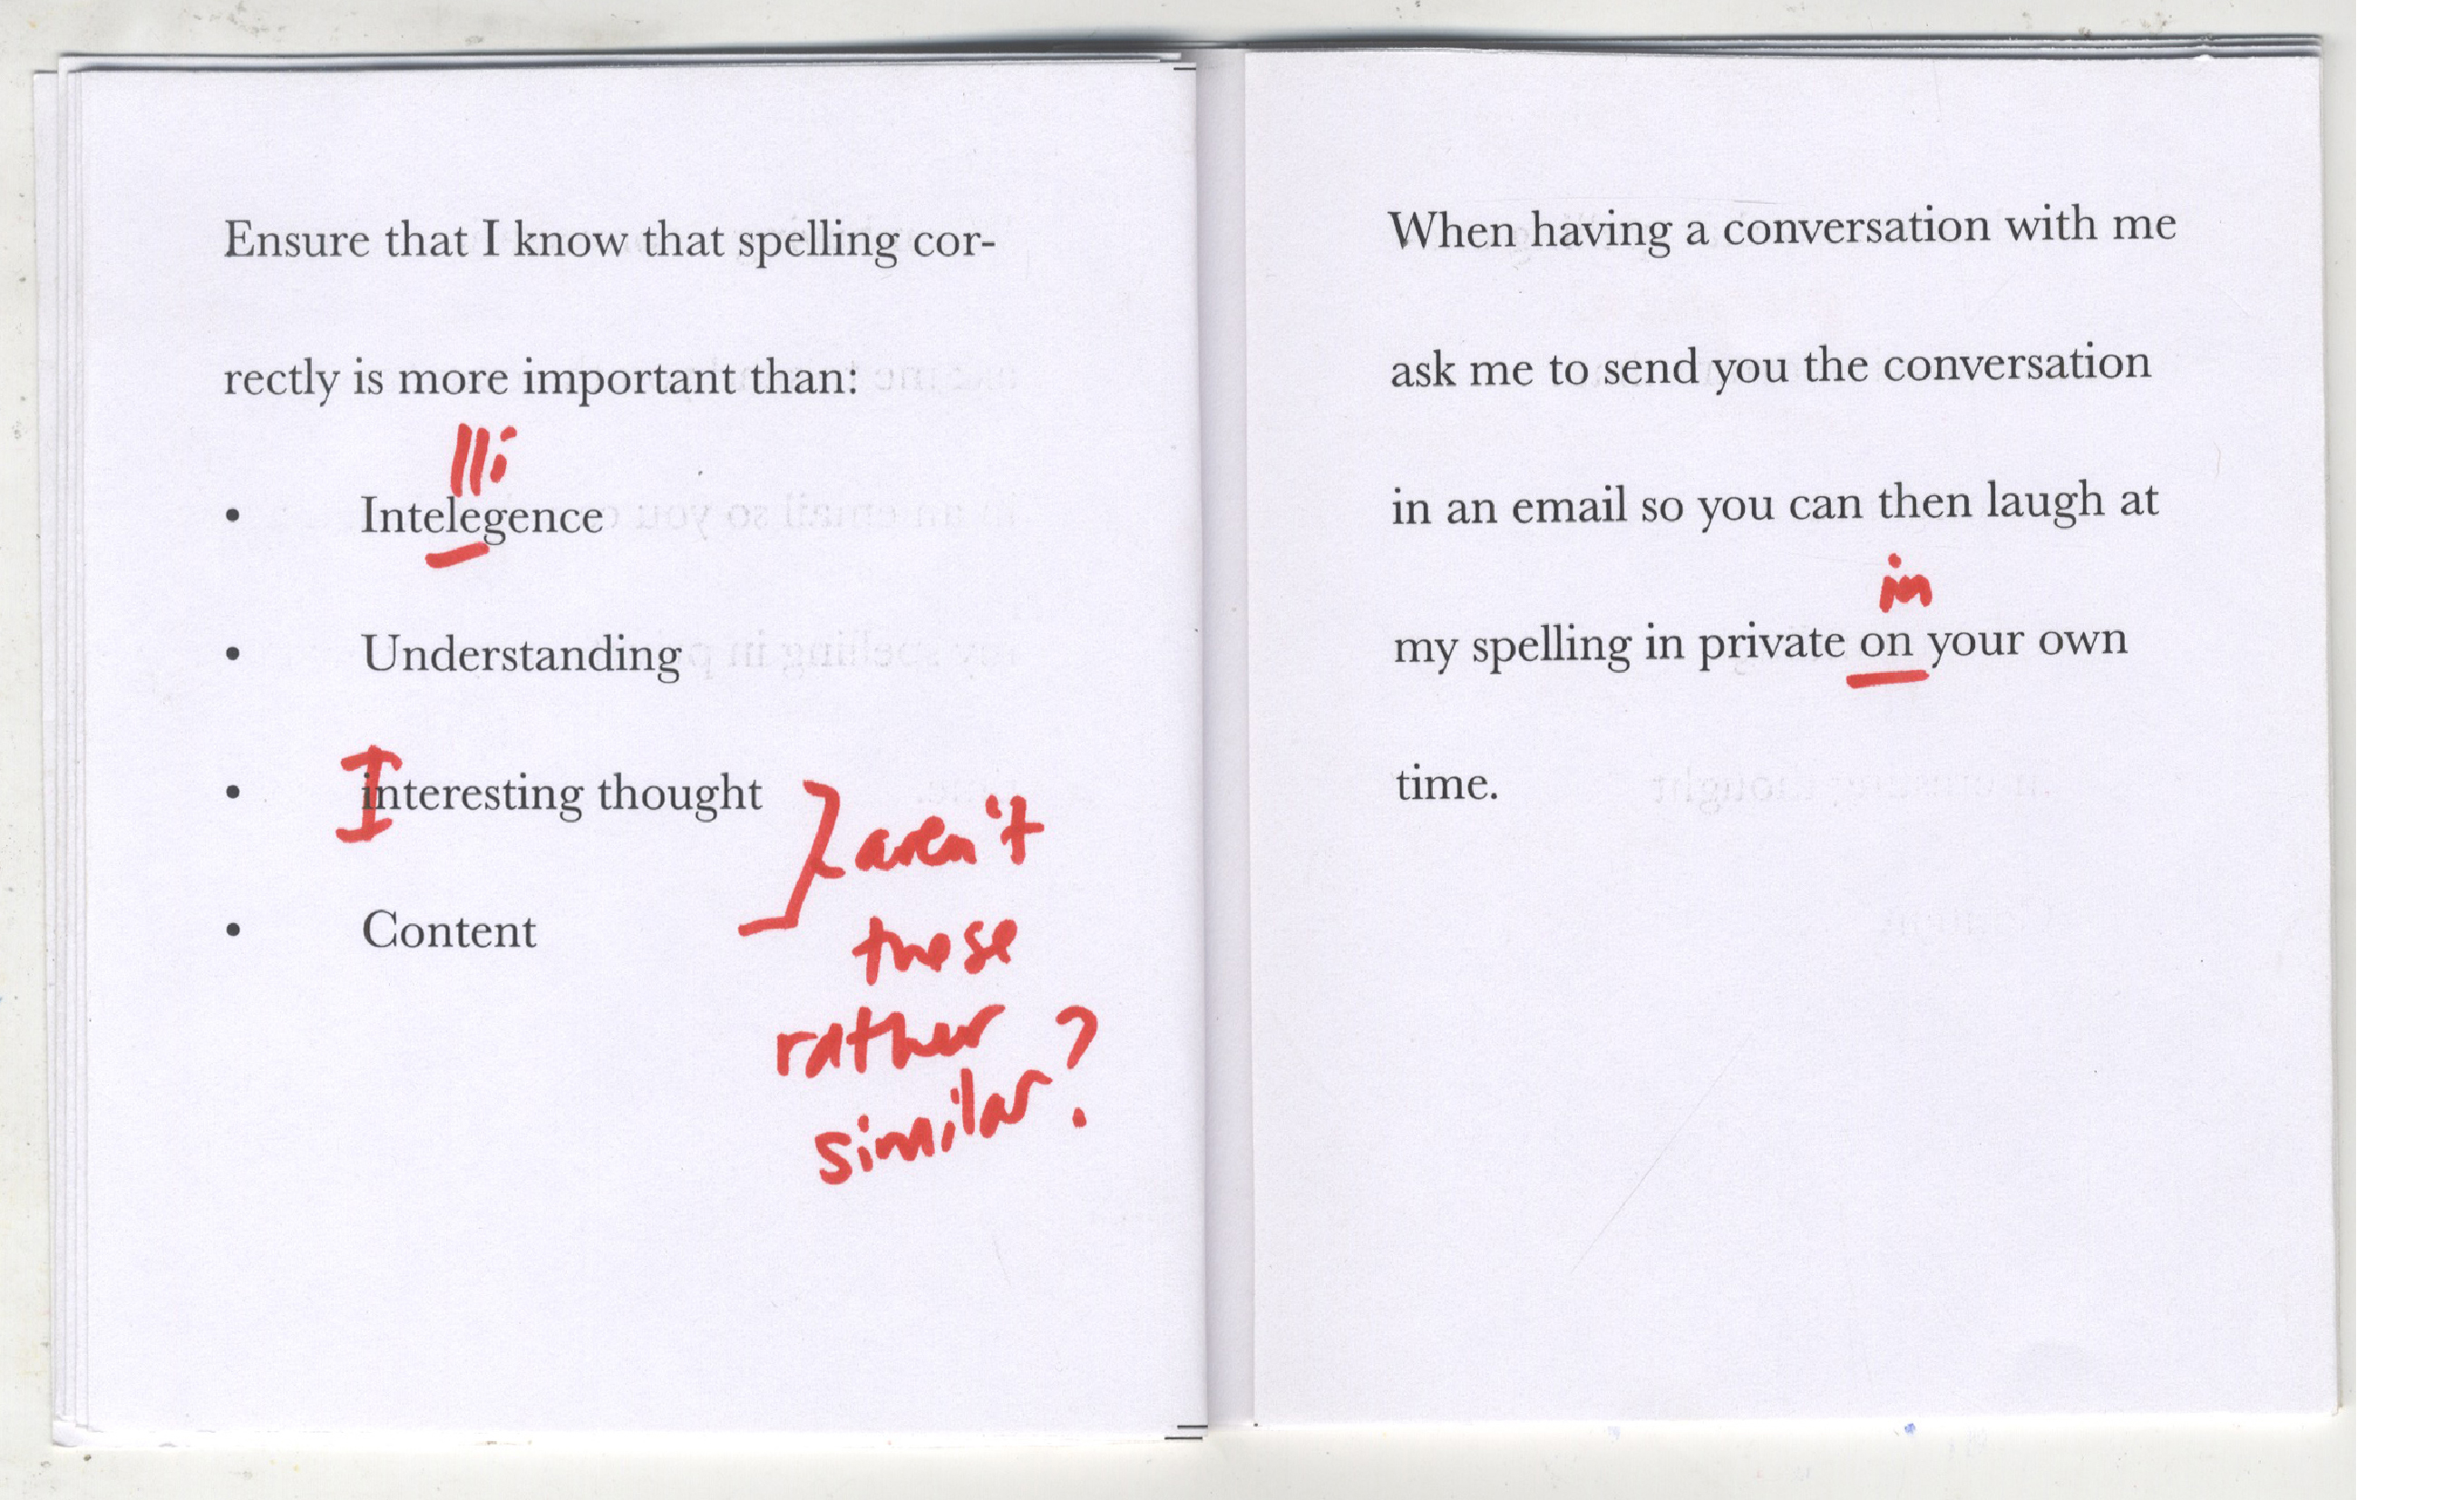 Ensure that I know that spelling cor-
rectly is more important than:
lli
• Intelegence
• Understanding
• Interesting thought
• Content
aren't
these
rather
similar?
When having a conversation with me
ask me to send you the conversation
in an email so you can then laugh at
in
my spelling in private on your own
time.